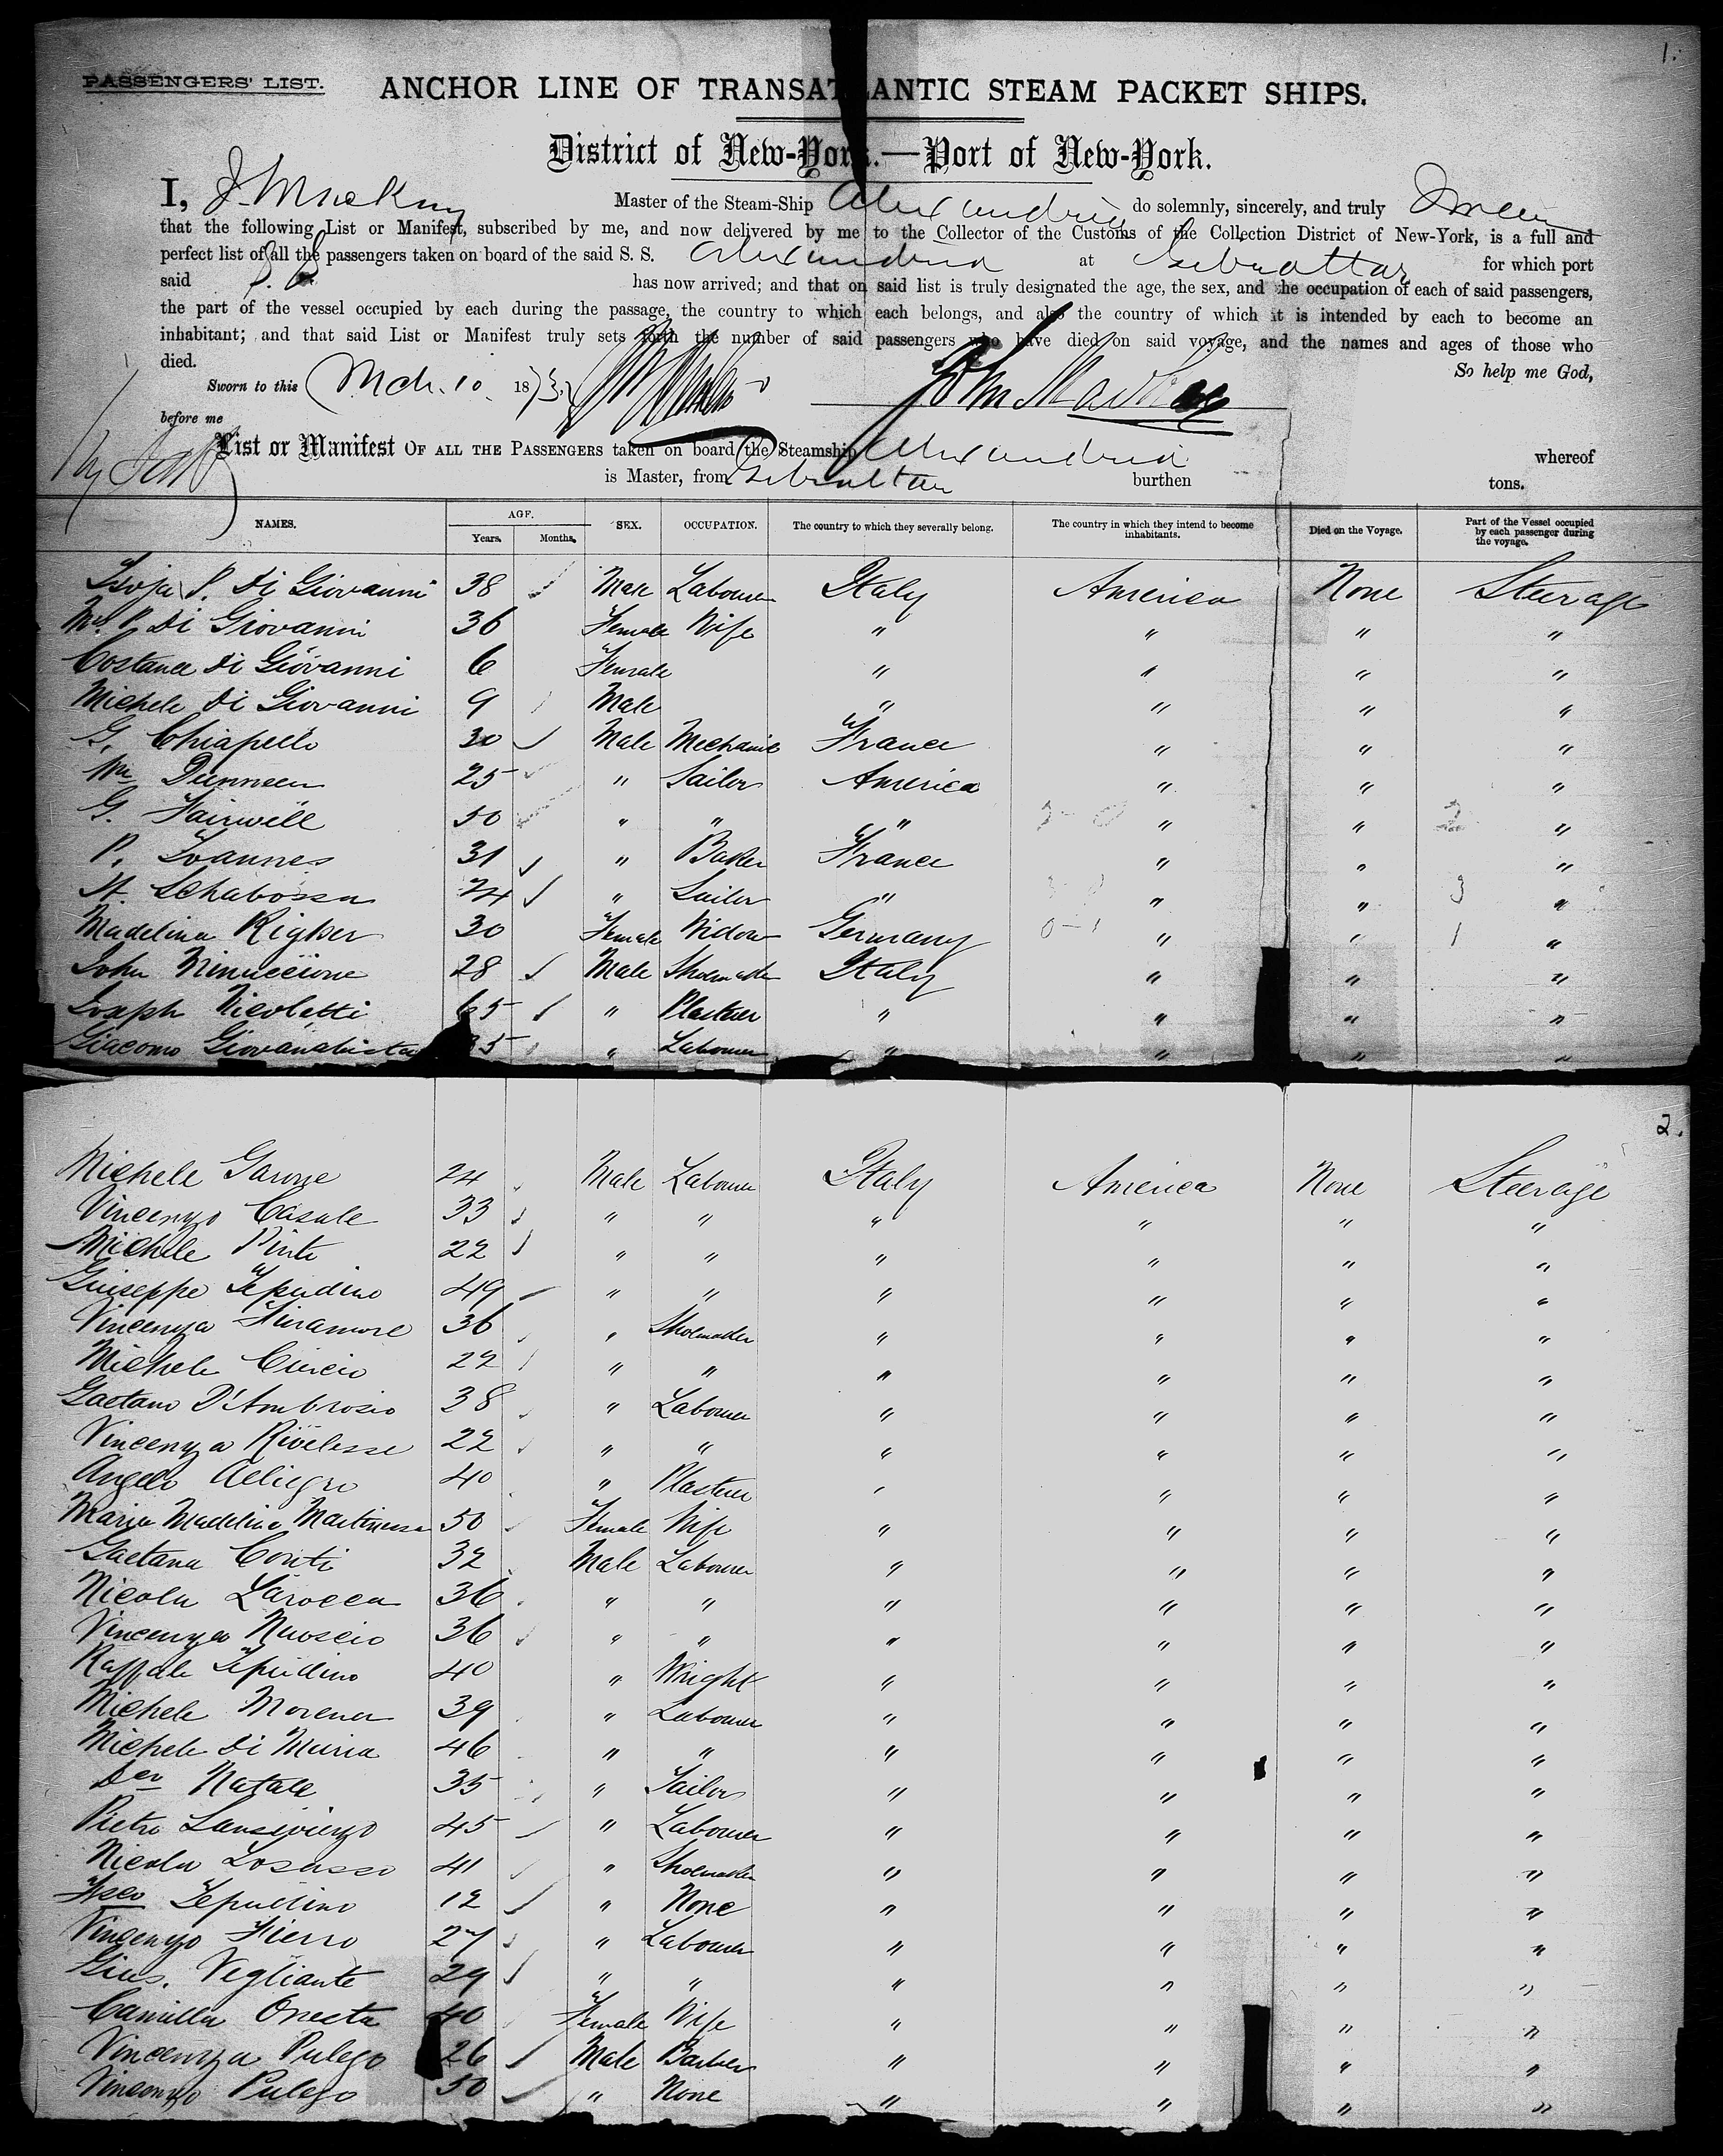 1.
PASSENGERS' LIST. ANCHOR LINE OF TRANSATLANTIC STEAM PACKET SHIPS.
District of New-York.—Port of New-York.
I, Master of the Steam-Ship Alexandria do solemnly, sincerely, and truly
that the following List or Manifest, subscribed by me, and now delivered by me to the Collector of the Customs of the Collection District of New-York, is a full and
perfect list of all the passengers taken on board of the said S. S. Alexandria at Gibraltar for which port
said has now arrived; and that on said list is truly designated the age, the sex, and the occupation of each of said passengers,
the part of the vessel occupied by each during the passage, the country to which each belongs, and also the country of which it is intended by each to become an
inhabitant; and that said List or Manifest truly sets forth the number of said passengers who have died on said voyage, and the names and ages of those who
died. So help me God,
Sworn to this Mch. 10. 1873 John
before me
List or Manifest OF ALL THE PASSENGERS taken on board the Steamship Alexandria whereof
is Master, from Gibraltar burthen tons.
NAMES. AGE. Years. Months. SEX. OCCUPATION. The country to which they severally belong. The country in which they intend to become inhabitants. Died on the Voyage. Part of the Vessel occupied by each passenger during the voyage.
P. Di Giovanni 38 Male Labourer Italy America None Steerage
P. Di Giovanni 36 Female Wife " " " "
Costanea Di Giovanni 6 Female " " " "
Michele Di Giovanni 9 Male " " " "
G. Chiapello 30 Male Mechanic France " " "
Wm Dunneen 25 " Sailor America " " "
G. Fairwell 50 " " " " " "
P. Joannes 31 " Baker France " " "
Schabossa 24 " Sailor " " " "
Madelina Rigker 30 Female Widow Germany " " "
John Ninuccione 28 Male Shoemaker Italy " " "
Joseph Nicoletti 65 " Plasterer " " " "
Giacomo Giovanabista 35 " Labourer " " " "
2.
Michele Garone 24 Male Labourer Italy America None Steerage
Vincenzo Casale 33 " " " " " "
Michele Pinto 22 " " " " " "
Guiseppe Tepedino 49 " " " " " "
Vincenza Fieramore 36 " Shoemaker " " " "
Michele Curcio 22 " " " " " "
Gaetano D'Ambrosio 38 " Labourer " " " "
Vincenza Rivelesse 22 " " " " " "
Angelo Allegro 40 " Plasterer " " " "
Maria Madelina 50 Female Wife " " " "
Gaetana Conti 32 Male Labourer " " " "
Nicola Larocca 36 " " " " " "
Vincenza 36 " " " " " "
Raffale Tepedino 40 " Wright " " " "
Michele Morena 39 " Labourer " " " "
Michele Di Muria 46 " " " " " "
Natale 35 " Tailor " " " "
Pietro 45 " Labourer " " " "
Nicola Losasso 41 " Shoemaker " " " "
Fsco Tepedino 12 " None " " " "
Vincenzo Fierro 27 " Labourer " " " "
Gius. Vegliante 29 " " " " " "
Camilla Onecta 40 Female Wife " " " "
Vincenza Pulego 26 Male Barber " " " "
Vincenzo Pulego 50 " None " " " "